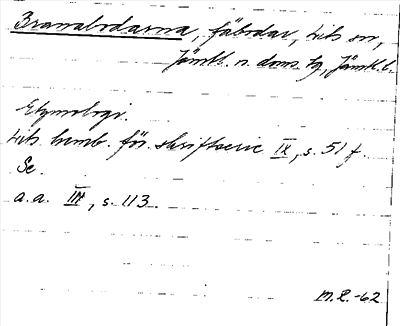 Branabodarna, fäbodar, Lits sn,
Jämtl. n. doms. tg, Jämtl. l.
Etymologi.
Lits hemb. för. skriftserie IX, s. 51 f.
Se.
a.a. III, s. 113.
M.E.-62